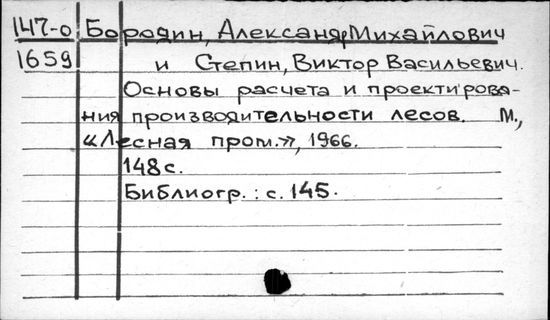 147-о Бородин, Александр Михайлович
1659 и Степин, Виктор Васильевич.
Основы расчета и проектирова-
ния производительности лесов. М.,
«Лесная пром.», 1966.
148 с.
Библиогр.: с. 145.